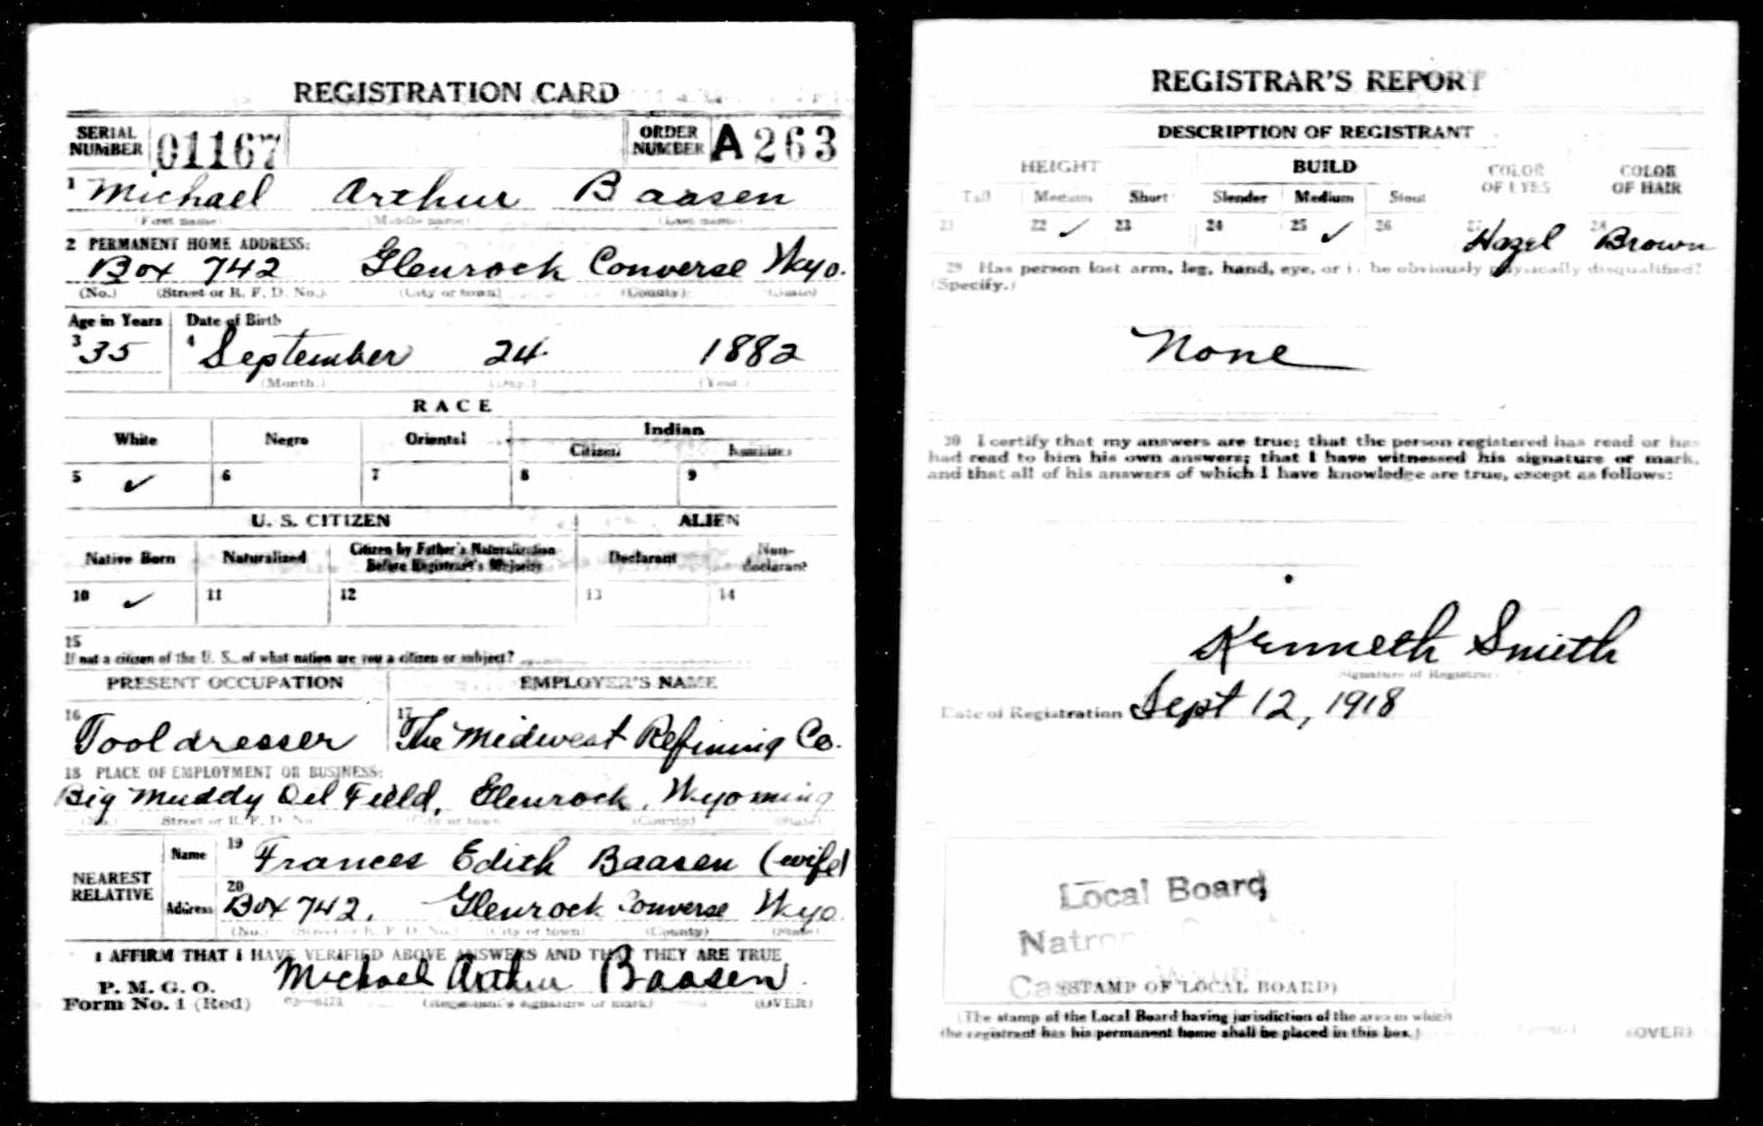 REGISTRATION CARD
SERIAL NUMBER 01167 ORDER NUMBER A 263
1 Michael Arthur Baasen
(First name) (Middle name) (Last name)
2 PERMANENT HOME ADDRESS:
Box 742 Glenrock Converse Wyo.
(No.) (Street or R. F. D. No.) (City or town) (County) (State)
Age in Years Date of Birth
3 35 4 September 24 1882
(Month.) (Day.) (Year.)
RACE
White Negro Oriental Indian
Citizen
5 ✓ 6 7 8 9
U. S. CITIZEN ALIEN
Native Born Naturalized Citizen by Father's Naturalization Before Registrant's Majority Declarant Non-declarant
10 ✓ 11 12 13 14
15
If not a citizen of the U. S., of what nation are you a citizen or subject?
PRESENT OCCUPATION EMPLOYER'S NAME
16 Tooldresser 17 The Midwest Refining Co.
18 PLACE OF EMPLOYMENT OR BUSINESS:
Big Muddy Oil Field, Glenrock, Wyoming
(No.) Street or R. F. D. No. (City or town (County) (State)
NEAREST RELATIVE
Name 19 Frances Edith Baasen (wife)
Address 20 Box 742, Glenrock Converse Wyo.
(No.) (Street or R. F. D. No.) (City or town) (County) (State)
I AFFIRM THAT I HAVE VERIFIED ABOVE ANSWERS AND THAT THEY ARE TRUE
P. M. G. O.
Form No. 1 (Red) Michael Arthur Baasen
(Registrant's signature or mark) (OVER)
REGISTRAR'S REPORT
DESCRIPTION OF REGISTRANT
HEIGHT BUILD COLOR OF EYES COLOR OF HAIR
Tall Medium Short Slender Medium Stout
21 22 ✓ 23 24 25 ✓ 26 27 Hazel 28 Brown
29 Has person lost arm, leg, hand, eye, or is he obviously physically disqualified?
(Specify.)
None
30 I certify that my answers are true; that the person registered has read or has
had read to him his own answers; that I have witnessed his signature or mark,
and that all of his answers of which I have knowledge are true, except as follows:
Kenneth Smith
Signature of Registrar
Date of Registration Sept 12, 1918
Local Board
(STAMP OF LOCAL BOARD)
(The stamp of the Local Board having jurisdiction of the area in which
the registrant has his permanent home shall be placed in this box.)
(OVER)